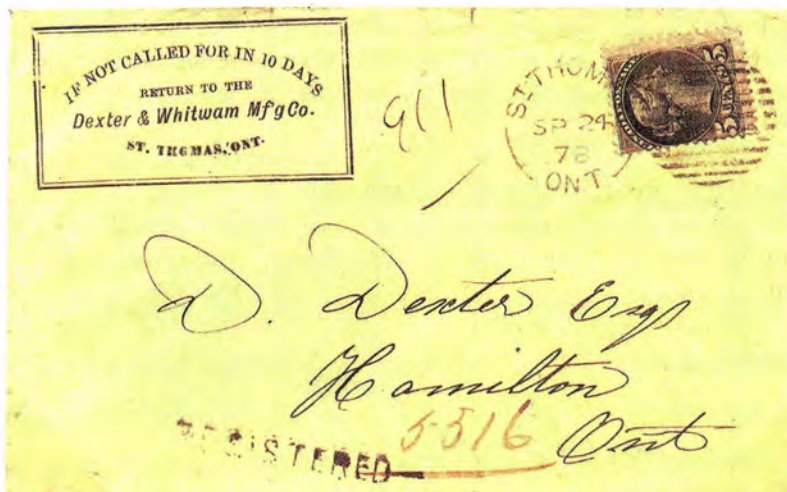 IF NOT CALLED FOR IN 10 DAYS
RETURN TO THE
Dexter & Whitwam Mf'g Co.
ST. THOMAS, ONT.
911
ST. THOM
SP 24
78
ONT
5 CENTS 5
D. Dexter Esq
Hamilton
Ont
5516
REGISTERED